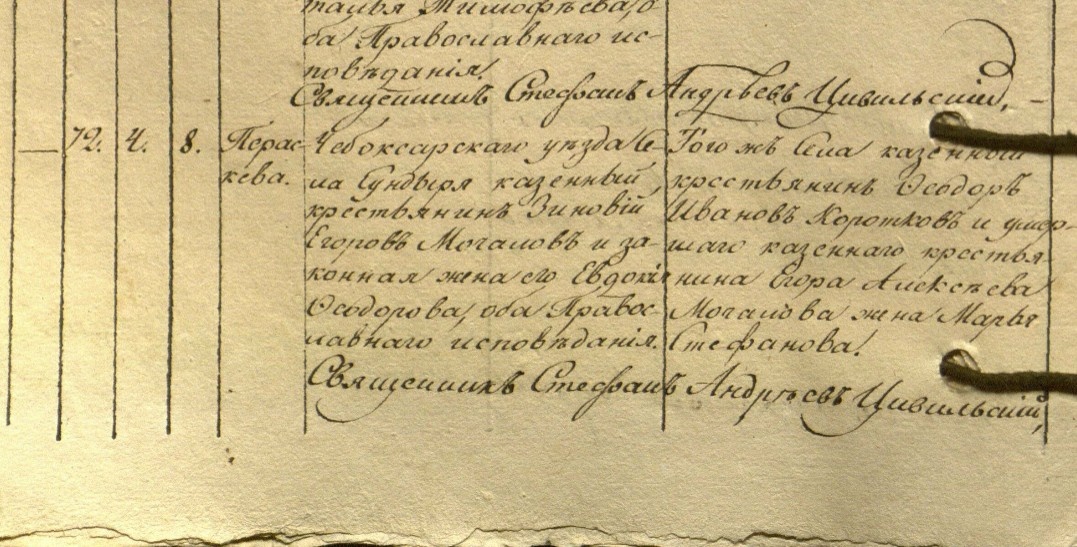 талья Тимофѣева, о-
ба Православнаго ис-
повѣданія.
Священникъ Стефанъ Андрѣевъ Цивильскій,
— 72. 4. 8. Перас-
кева.
Чебоксарскаго уѣзда Се-
ла Сундыря казенный
крестьянинъ Зиновій
Егоровъ Мочаловъ и за-
конная жена его Евдокія
Ѳеодорова, оба Правос-
лавнаго исповѣданія.
Того жъ Села казенной
крестьянинъ Ѳеодоръ
Ивановъ Коротковъ и умер-
шаго казеннаго крестья-
нина Егора Алексѣева
Мочалова жена Марья
Стефанова.
Священникъ Стефанъ Андрѣевъ Цивильскій,